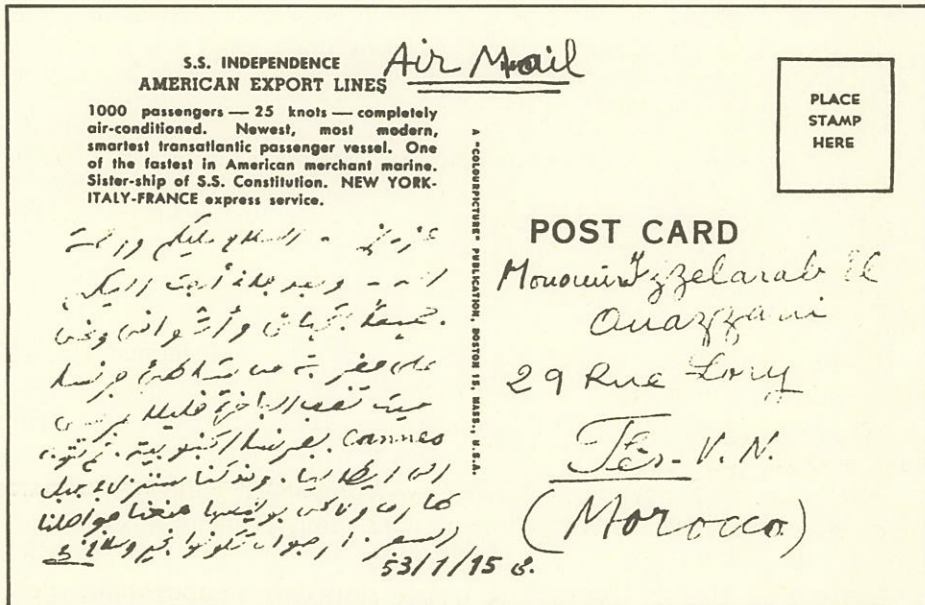 S.S. INDEPENDENCE
AMERICAN EXPORT LINES
Air Mail
1000 passengers — 25 knots — completely
air-conditioned. Newest, most modern,
smartest transatlantic passenger vessel. One
of the fastest in American merchant marine.
Sister-ship of S.S. Constitution. NEW YORK-
ITALY-FRANCE express service.
PLACE
STAMP
HERE
A "COLOURPICTURE" PUBLICATION, BOSTON 15, MASS., U.S.A.
السلام عليكم ورحمة
الله - وبعد فانا أبعث اليكم
جميعا بتحياتي وأشواقي ونحن
على مقربة من شاطئ فرنسا
حيث تقف الباخرة قليلا
Cannes بفرنسا الجنوبية. ثم
الى ايطاليا. وقد كنا سننزل بجبل
طارق ولكن بوليسها منعنا فواصلنا
السفر. ارجو ان تكونوا بخير وسلام
53/1/15
POST CARD
Izzelarab El
Ouazzani
29 Rue Lory
Fès - V. N.
(Morocco)